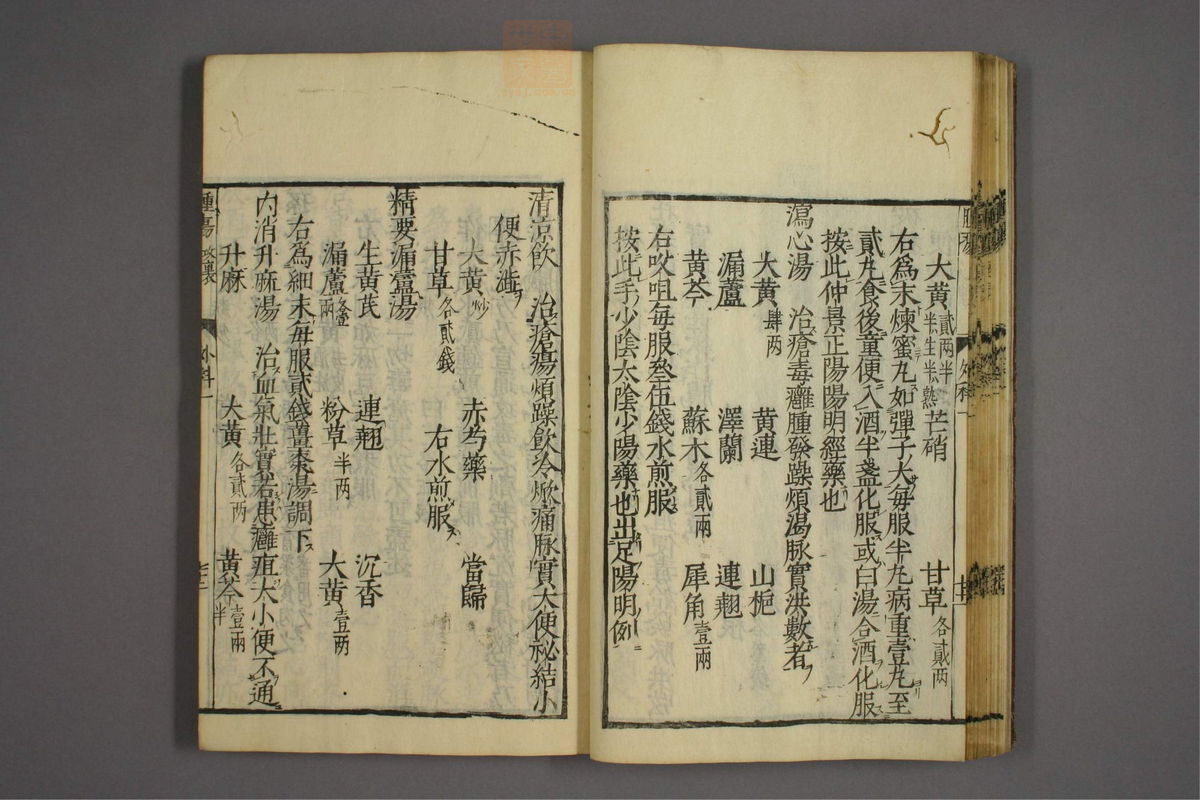 大黃貳兩半半生半熟 芒硝 甘草各貳两
右爲末煉蜜丸如彈子大每服半丸病重壹丸至
貳丸食後童便入酒半盞化服或白湯合酒化服
按此仲景正陽陽明經藥也
瀉心湯 治瘡毒癰腫發躁煩渴脉實洪數者
大黃肆两 黃連 山梔
漏蘆 澤蘭 連翹
黃芩 蘇木各貳兩 犀角壹兩
右㕮咀每服叄伍錢水煎服
按此手少陰太陰少陽藥也出足陽明例
清凉飲 治瘡瘍煩躁飲冷焮痛脉實大便祕結小
便赤澁
大黃炒 赤芍藥 當歸
甘草各貳錢 右水煎服
精要漏蘆湯
生黃芪 連翹 沉香
漏蘆各壹兩 粉草半两 大黃壹两
右爲細末每服貳錢薑棗湯調下
内消升麻湯 治血氣壯實若患癰疽大小便不通
升麻 大黃各貳两 黃芩壹兩半
腫瘍 外科一